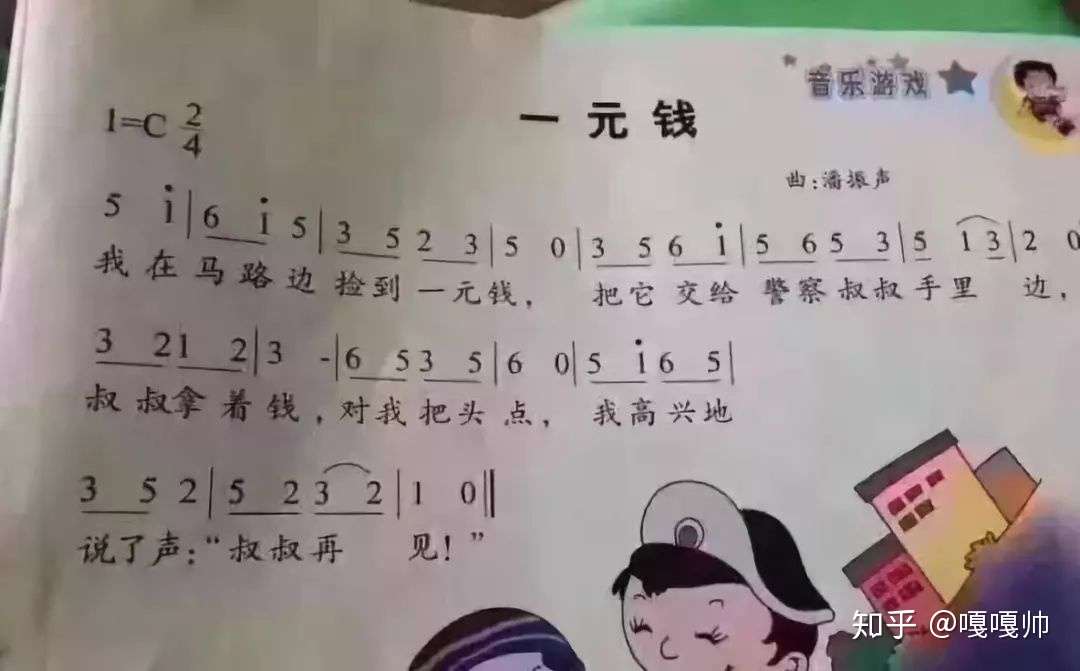 音乐游戏
一元钱
1=C 2/4
曲:潘振声
5 i̇|6 i̇ 5|3 5 2 3|5 0|3 5 6 i̇|5 6 5 3|5 1 3|2 0
我在马路边捡到一元钱, 把它交给警察叔叔手里 边,
3 2 1 2|3 -|6 5 3 5|6 0|5 i̇ 6 5|
叔叔拿着钱,对我把头点, 我高兴地
3 5 2|5 2 3 2|1 0‖
说了声:“叔叔再 见!”
知乎 @嘎嘎帅